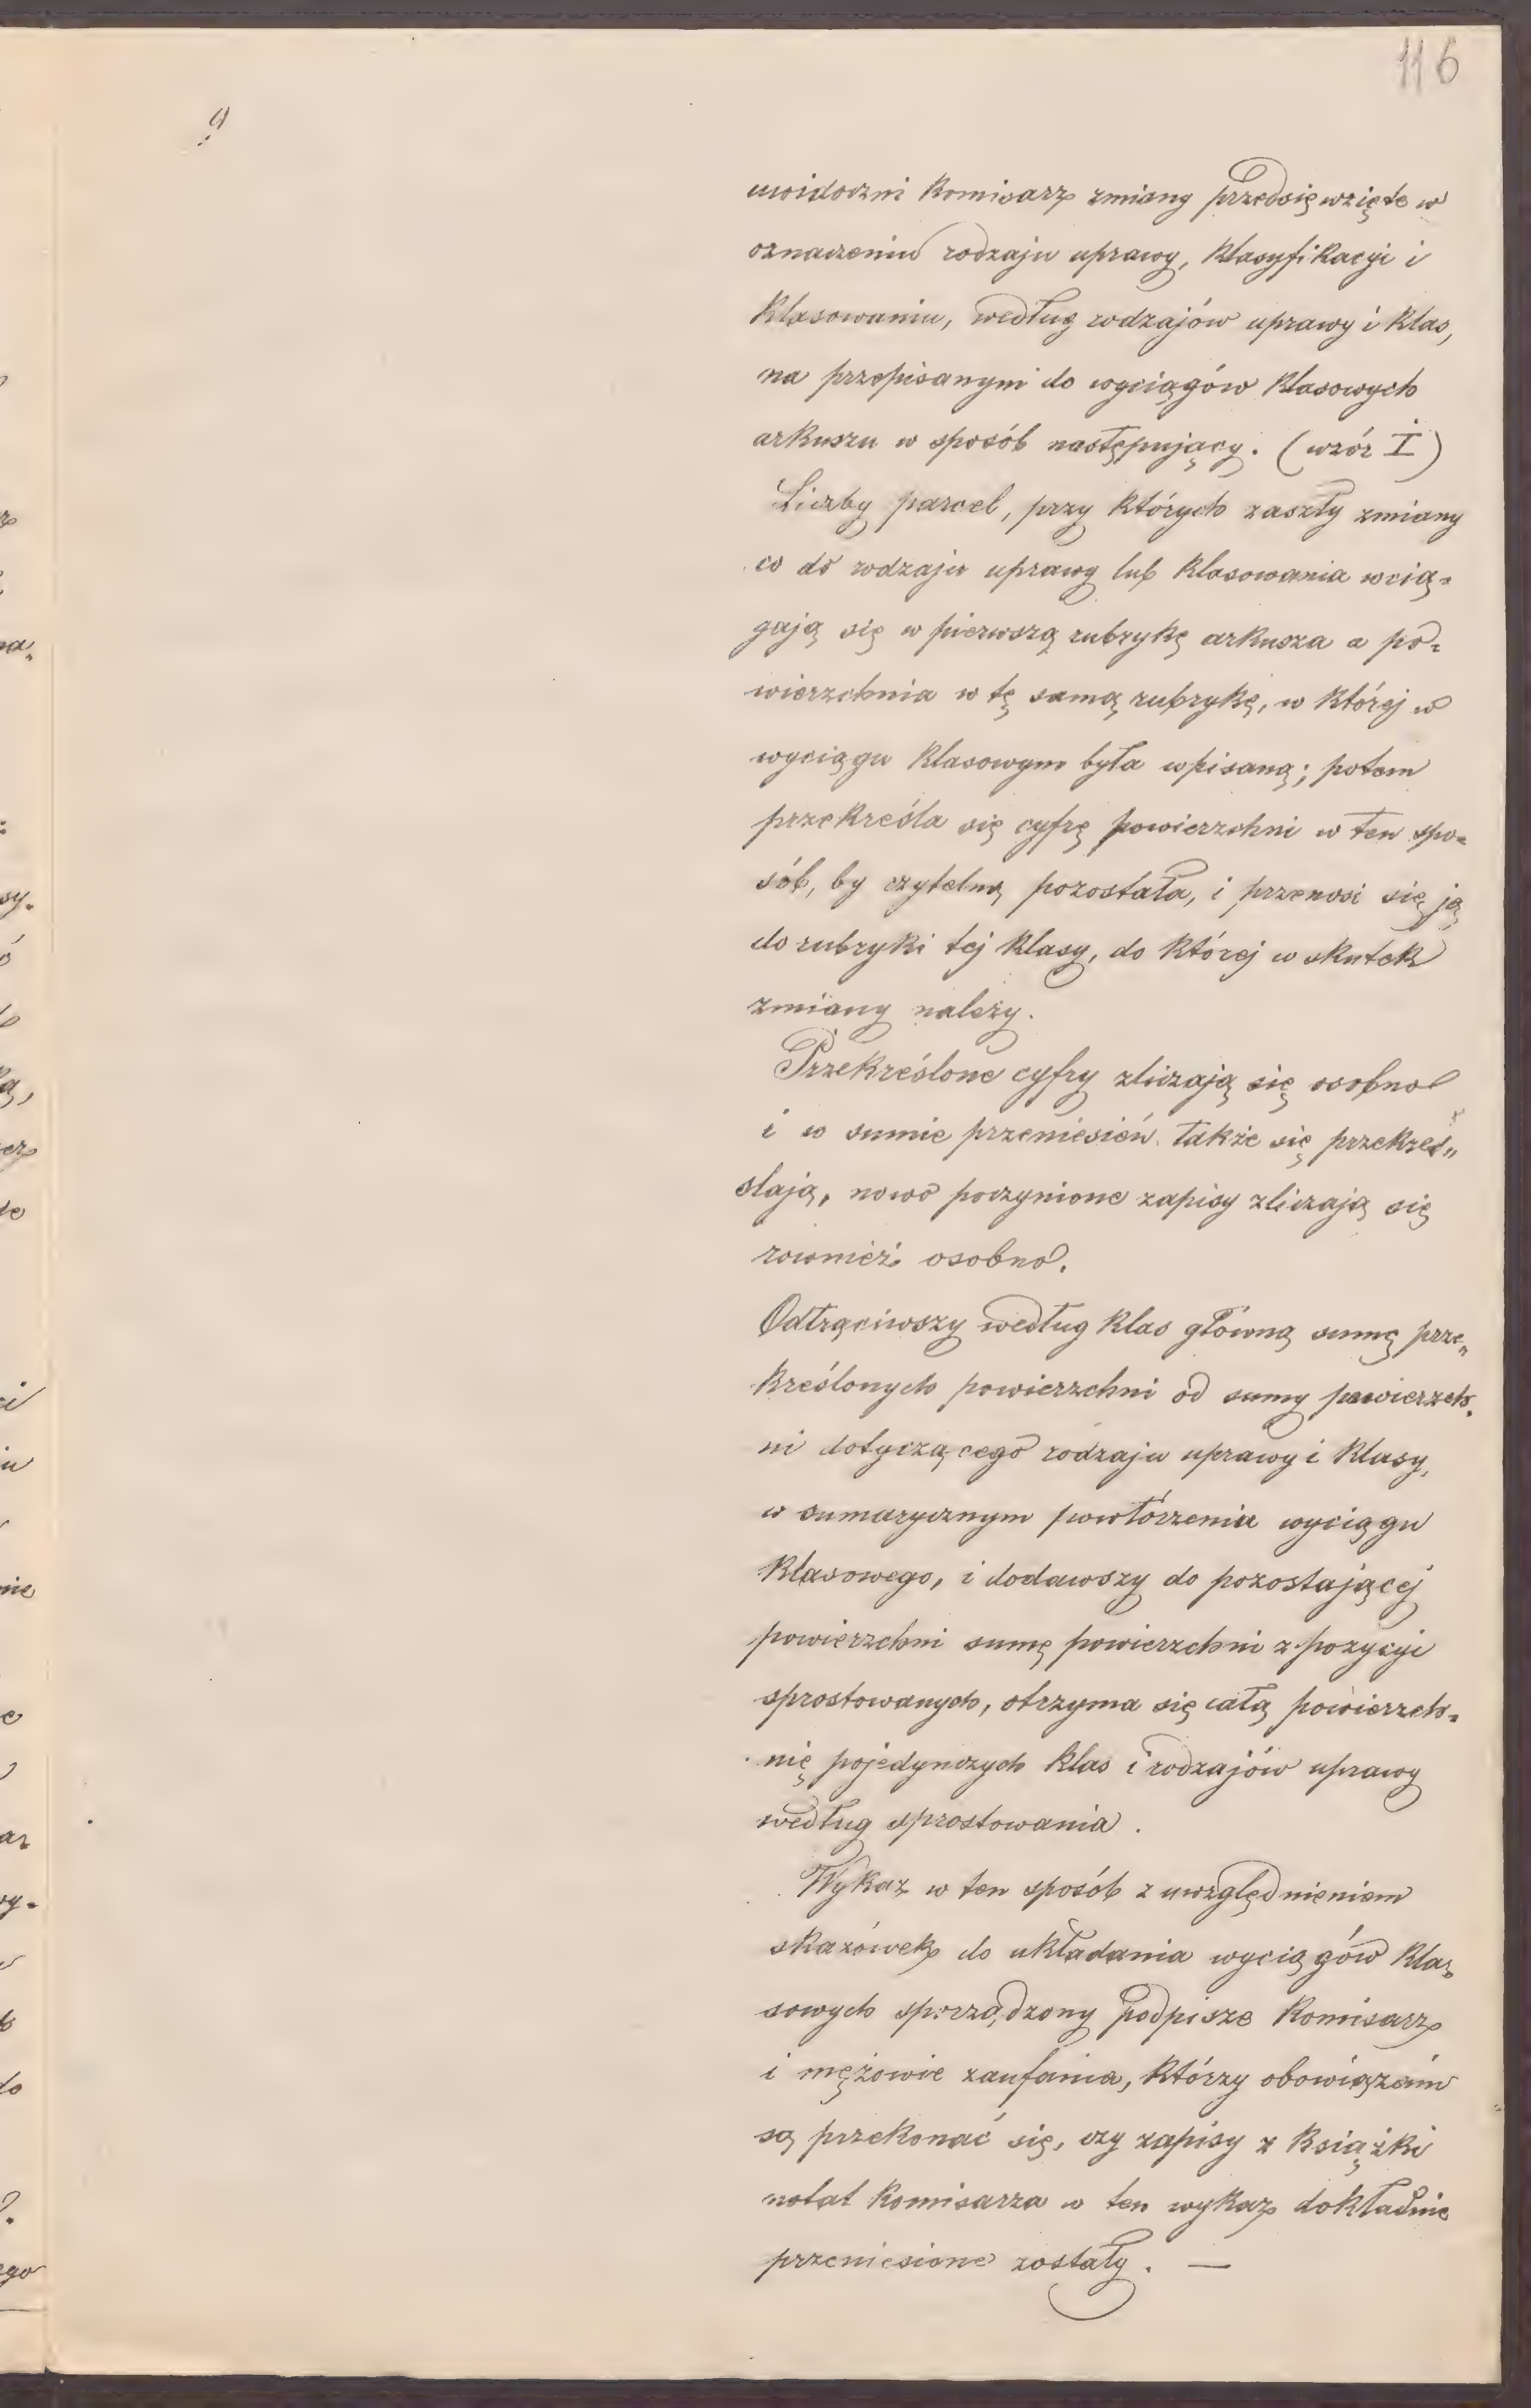 116
uwidoczni Komisarz zmiany przedsięwzięte w
oznaczeniu rodzaju uprawy, klasyfikacyi i
klasowaniu, według rodzajów uprawy i klas,
na przepisanym do wyciągów klasowych
arkuszu w sposób następujący. (wzór I)
Liczby parcel, przy których zaszły zmiany
co do rodzaju uprawy lub klasowania wcią-
gają się w pierwszą rubrykę arkusza a po-
wierzchnia w tę samą rubrykę, w której w
wyciągu klasowym była wpisaną; potem
przekreśla się cyfrę powierzchni w ten spo-
sób, by czytelną pozostała, i przenosi się ją
do rubryki tej klasy, do której w skutek
zmiany należy.
Przekreślone cyfry zliczają się osobno
i w sumie przeniesień także się przekreś-
slają, nowo poczynione zapisy zliczają się
rownież osobno.
Odtrąciwszy według klas główną sumę prze-
kreślonych powierzchni od sumy powierzch-
ni dotyczącego rodzaju uprawy i klasy,
w sumarycznym powtórzeniu wyciągu
klasowego, i dodawszy do pozostającej
powierzchni sumę powierzchni z pozycyi
sprostowanych, otrzyma się całą powierzch-
nię pojedynczych klas i rodzajów uprawy
według sprostowania.
Wykaz w ten sposób z uwzględnieniem
skazówek do układania wyciągów kla-
sowych sporządzony podpisze Komisarz
i mężowie zaufania, którzy obowiązani
są przekonać się, czy zapisy z książki
notat Komisarza w ten wykaz dokładnie
przeniesione zostały. —